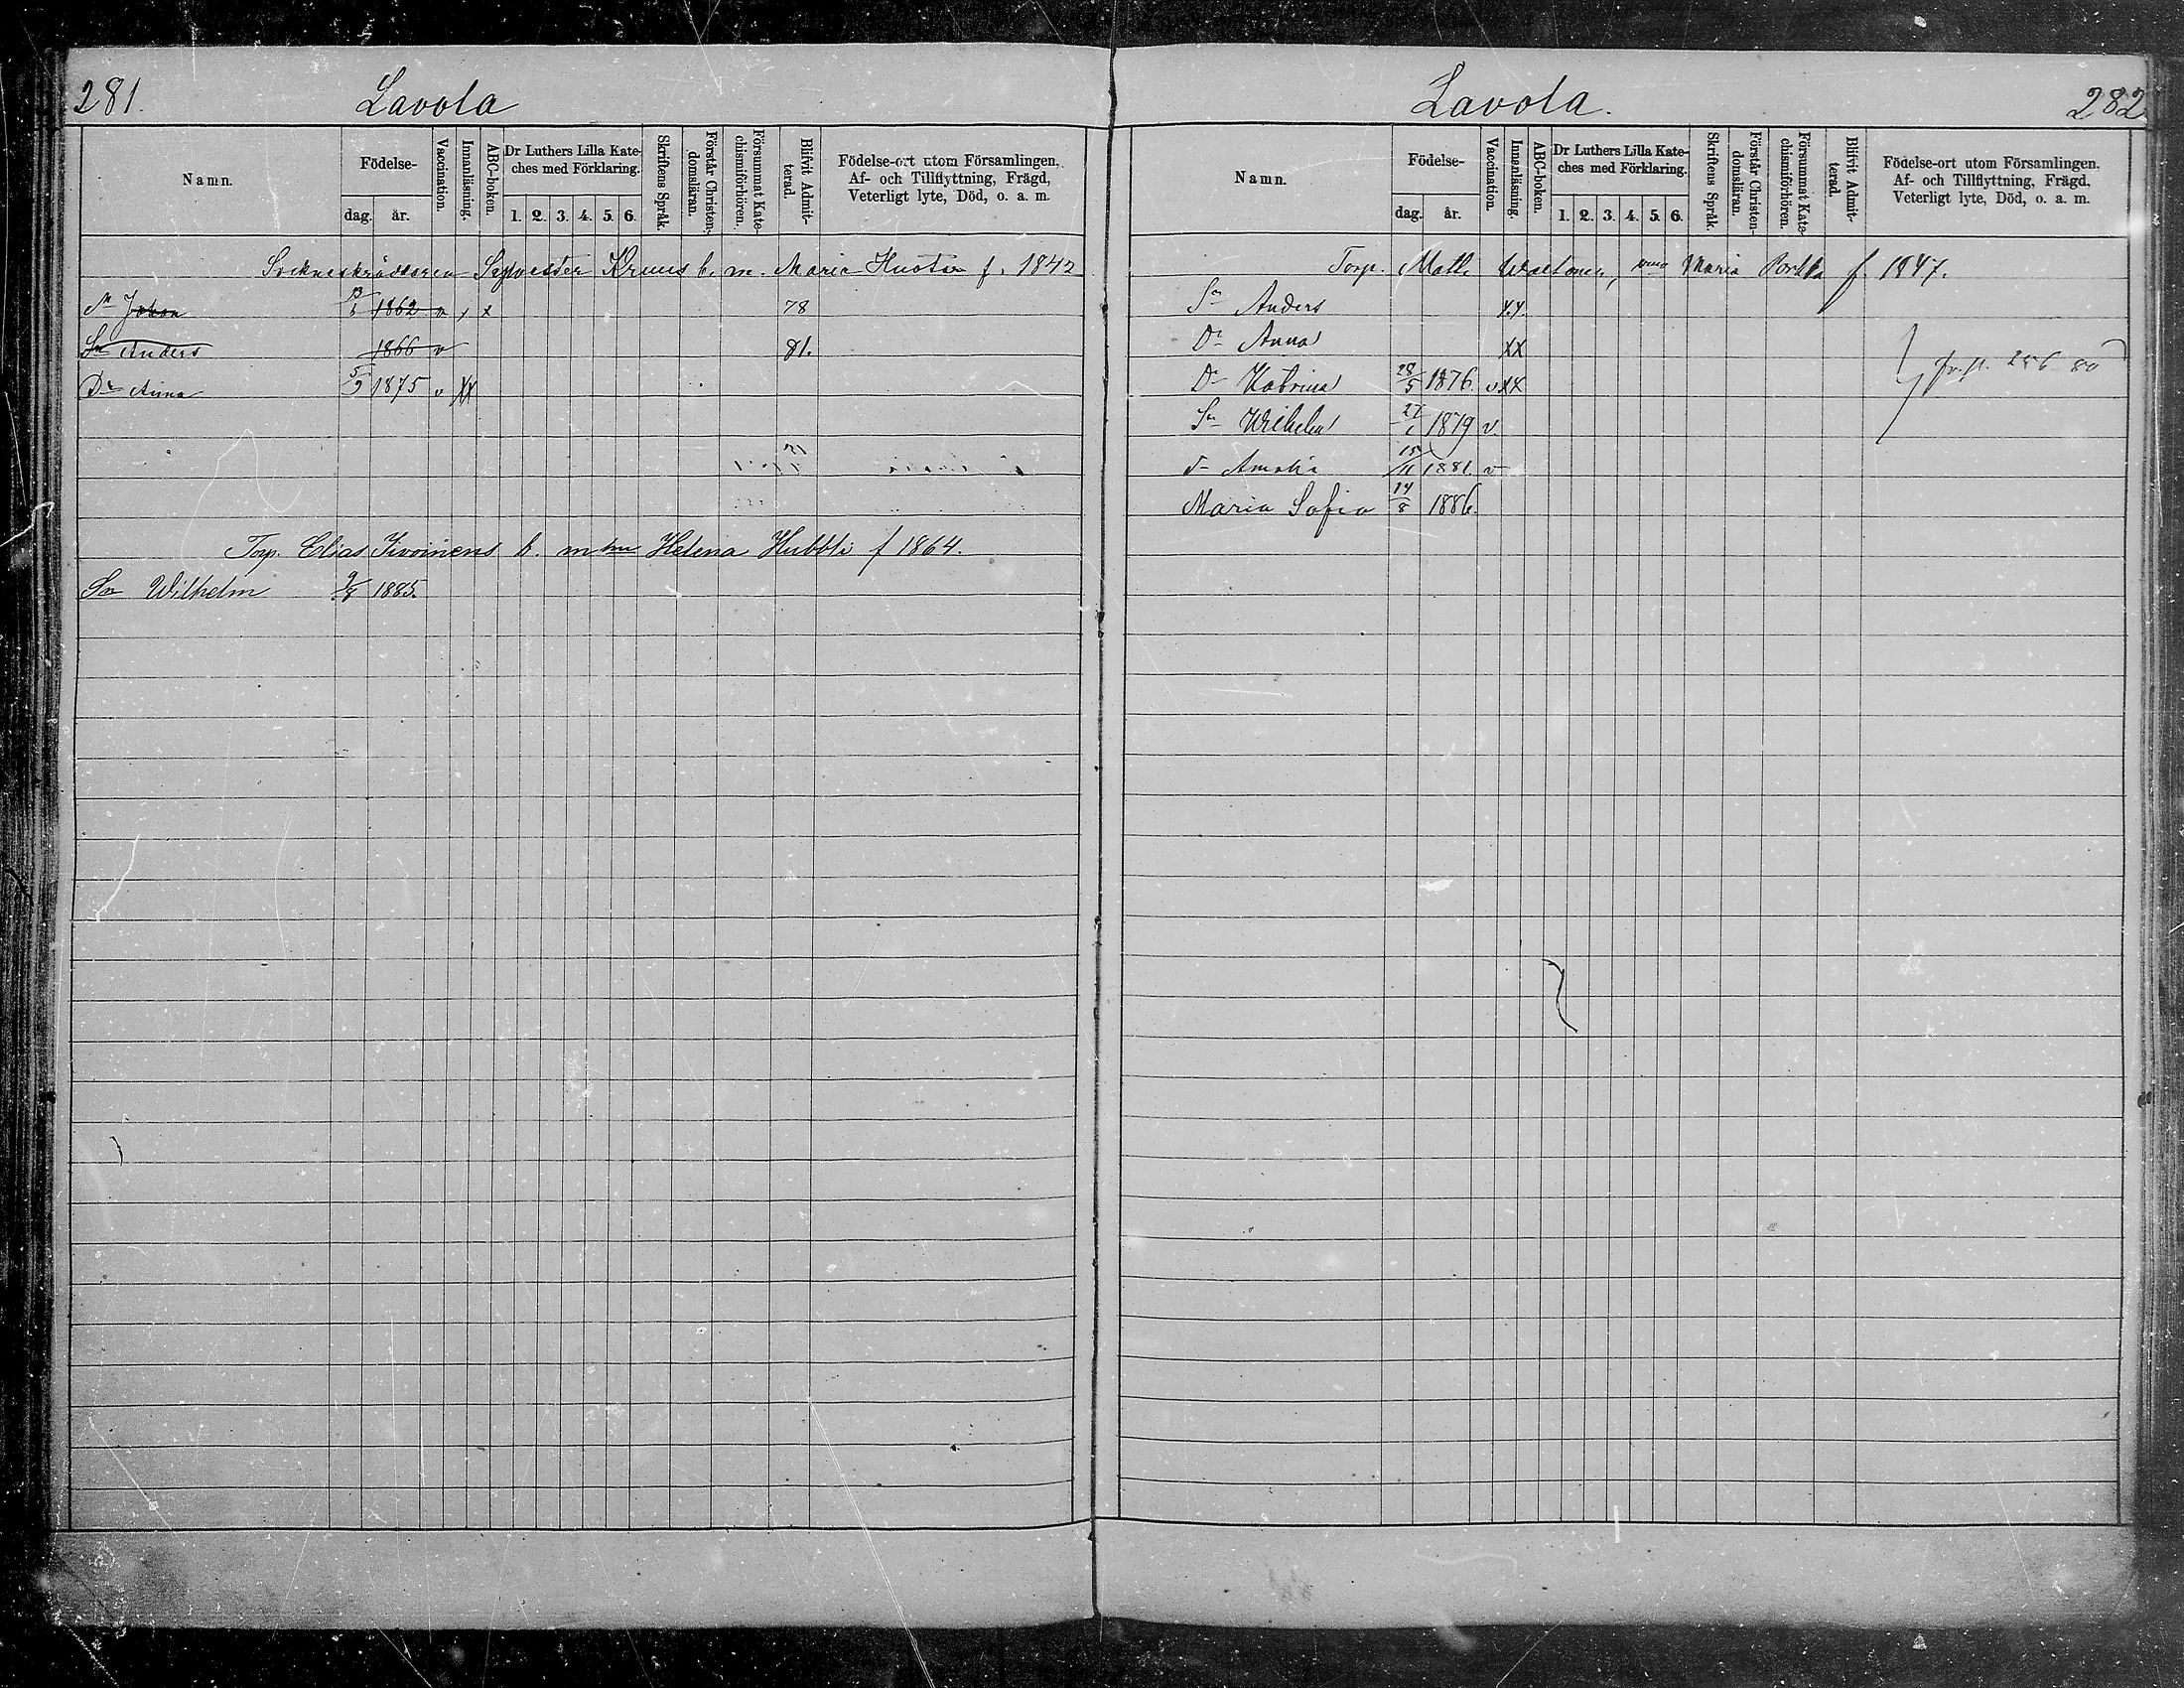 281.
Lavola
Namn.
Födelse-
dag. år.
Vaccination.
Innanläsning.
ABC-boken.
Dr Luthers Lilla Kate-
ches med Förklaring.
1. 2. 3. 4. 5. 6.
Skriftens Språk.
Förstår Christen-
domsläran.
Försummat Kate-
chismiförhören.
Blifvit Admit-
terad.
Födelse-ort utom Församlingen.
Af- och Tillflyttning, Frägd,
Veterligt lyte, Död, o. a. m.
Sockneskräddaren Sylvester b. m. Maria f. 1842
Sn Johan 1862 v x 78
Sn Anders 1866 v 81.
Dr Anna 1875 v xx
Torp. Elias Kivoinens b. m hu Helena Hubbli f 1864.
Son Wilhelm 1885.
Lavola.
282
Namn.
Födelse-
dag. år.
Vaccination.
Innanläsning.
ABC-boken.
Dr Luthers Lilla Kate-
ches med Förklaring.
1. 2. 3. 4. 5. 6.
Skriftens Språk.
Förstår Christen-
domsläran.
Försummat Kate-
chismiförhören.
Blifvit Admit-
terad.
Födelse-ort utom Församlingen.
Af- och Tillflyttning, Frägd,
Veterligt lyte, Död, o. a. m.
Torp. Matts Maria f 1847.
Sn Anders x.x.
Dr Anna xx
Dr Katrina 28/5 1876. v xx
fr. p. 256 80
Sn Wilhelm 1879 v.
d Amalia 15/11 1881. v
Maria Sofia 14/8 1886.